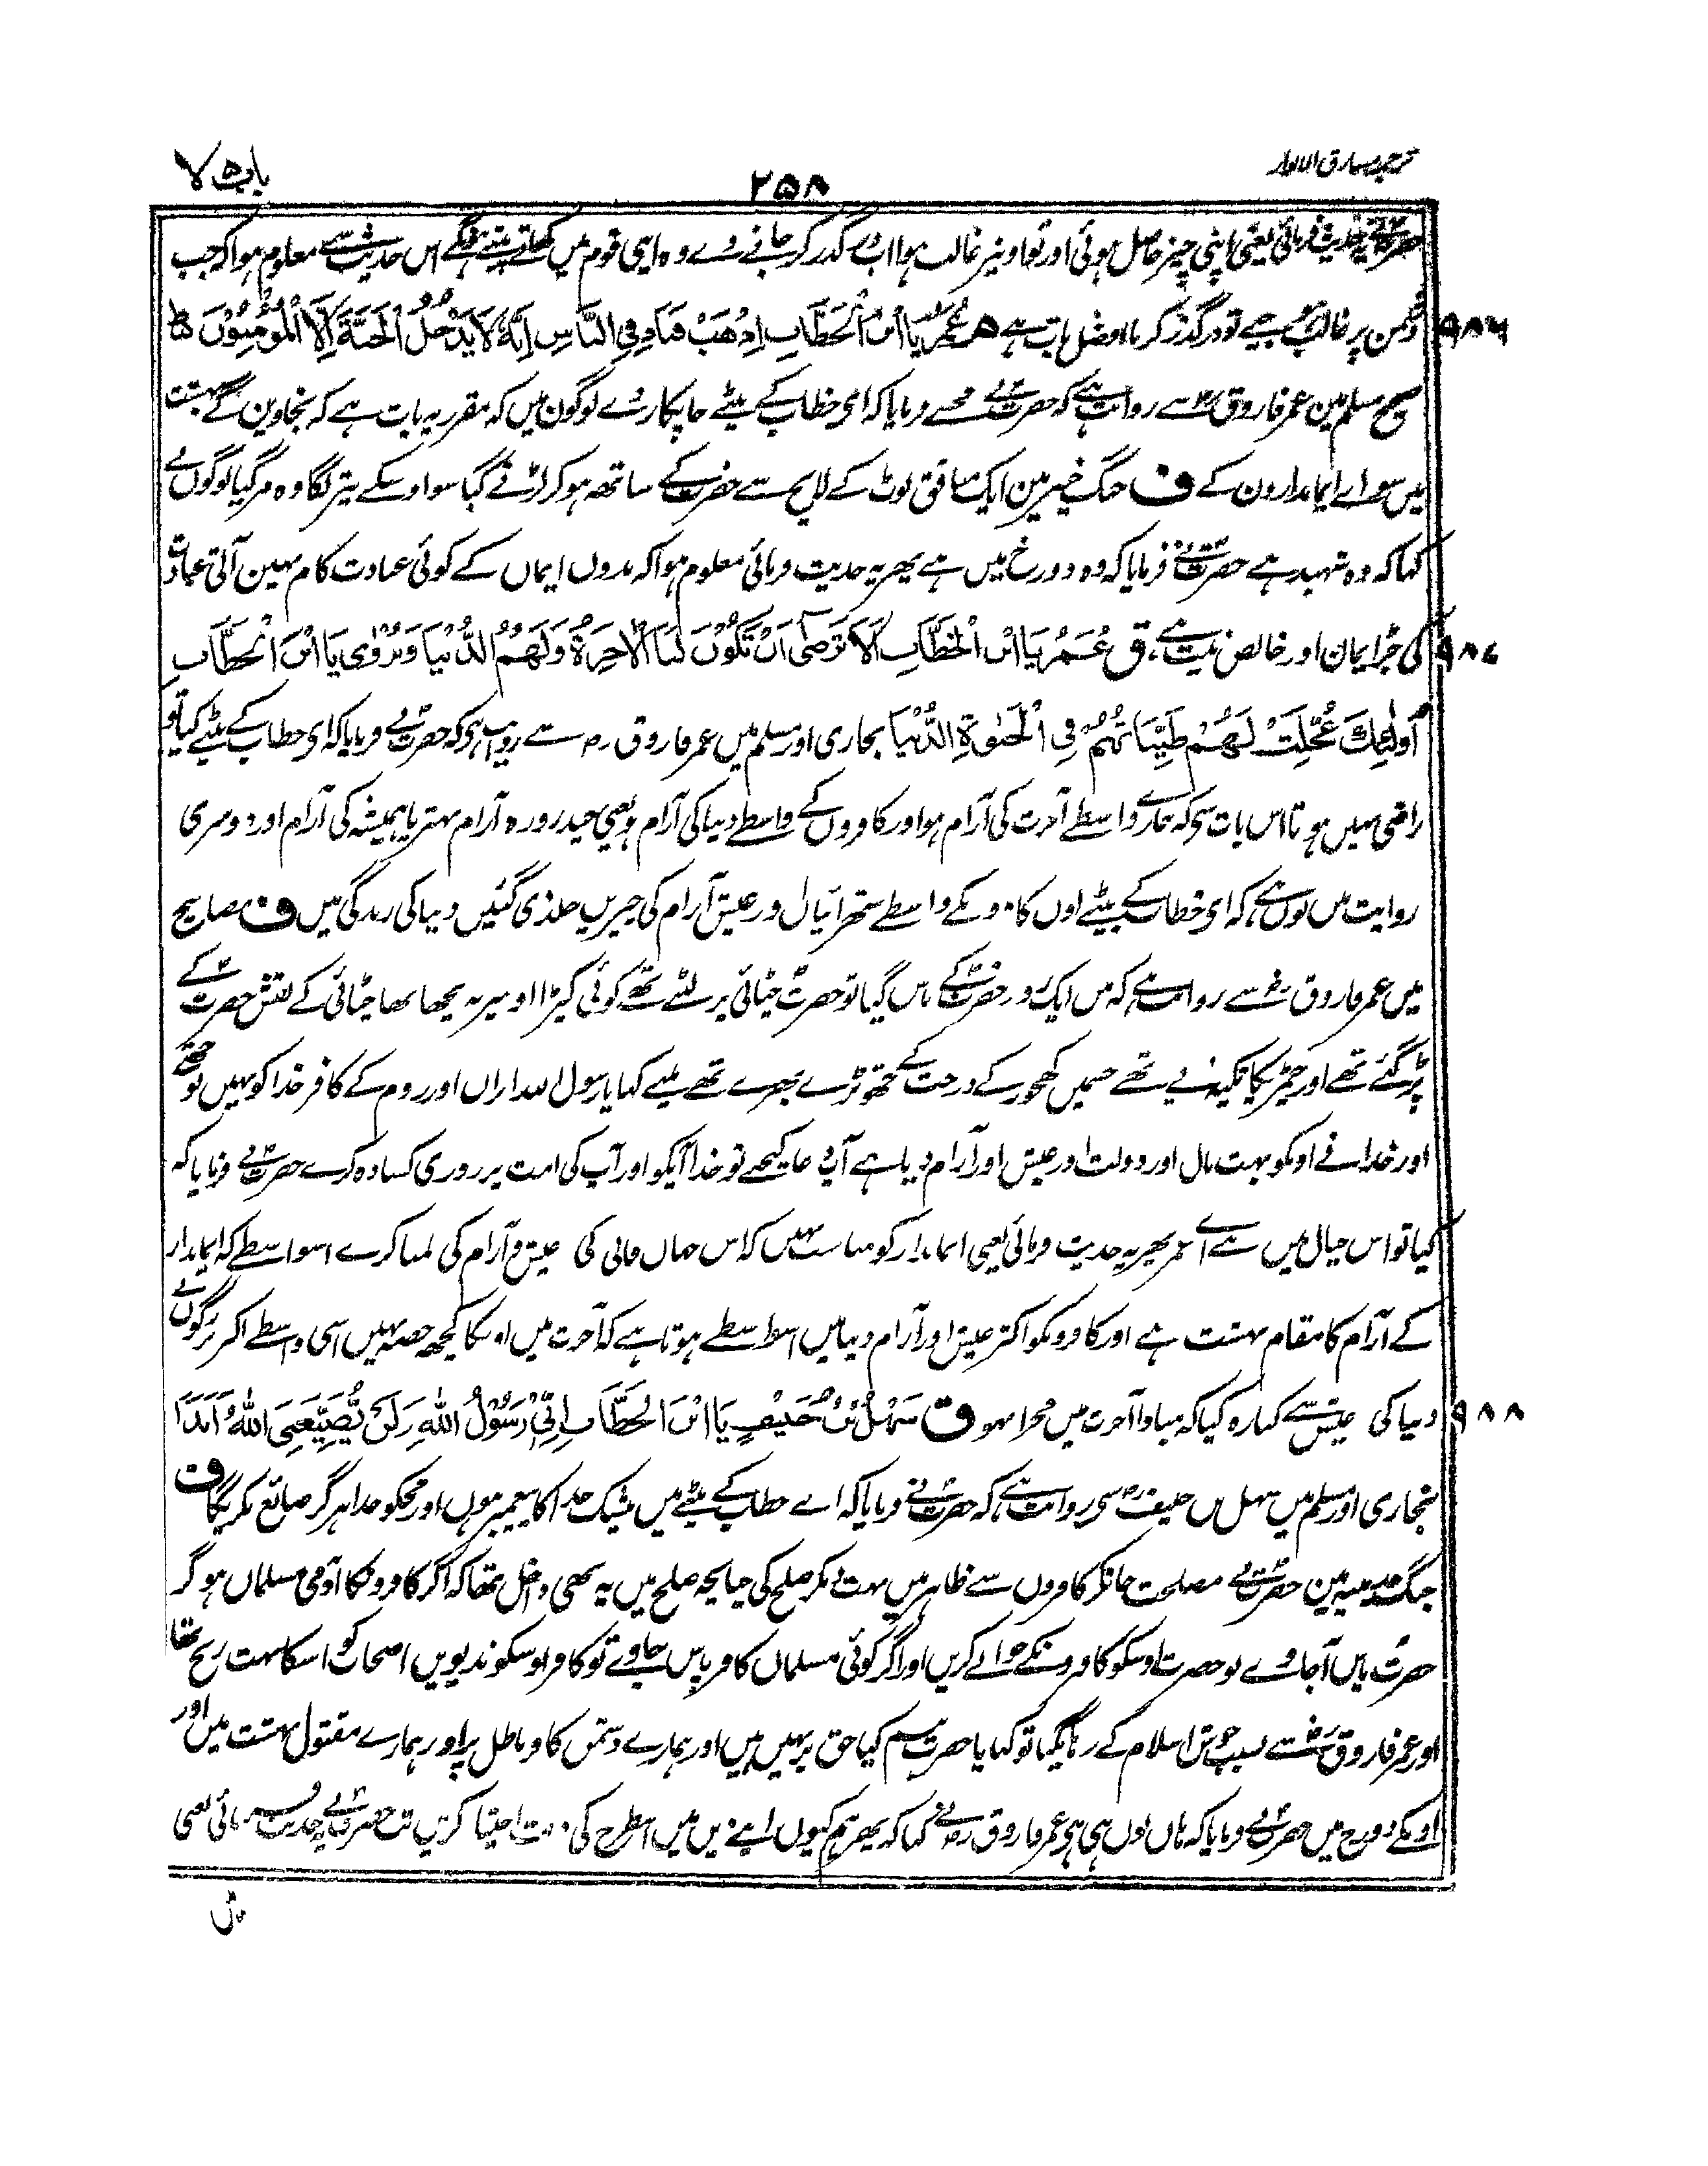 ترجمہ مشارق الانوار
۲۵۸
باب ۷
حضرت نے یہ حدیث فرمائی یعنی اپنی چیز حاصل ہوئی اور تو اونپر غالب ہوا اب در گذر کر جانے دے وہ اپنی قوم میں کھاتے پیتے ہونگے اس حدیث سے معلوم ہوا کہ جب
۹۸۶
دشمن پر غالب ہو جیے تو درگذر کرنا افضل بات ہے م عُمَرُ يَا ابْنَ الْخَطَّابِ اِذْهَبْ فَنَادِ فِي النَّاسِ اِنَّهُ لَا يَدْخُلُ الْجَنَّةَ اِلَّا الْمُؤْمِنُوْنَ ط
صحیح مسلم مین عمر فاروق رض سے روایت ہے کہ حضرت نے مجھسے فرمایا کہ ای خطاب کے بیٹے جا پکار دے لوگون میں کہ مقرر یہ بات ہے کہ نجاوین گے بہشت
میں سواے ایماندارون کے ف جنگ خیبر مین ایک منافق لوٹ کے لالچ سے حضرت کے ساتھ ہو کر لڑنے گیا سو اوسکے تیر لگا وہ مر گیا لوگوں نے
کہا کہ وہ شہید ہے حضرت نے فرمایا کہ وہ دوزخ میں ہے پھر یہ حدیث فرمائی معلوم ہوا کہ بدوں ایمان کے کوئی عبادت کام نہین آتی عبادت
۹۸۷
کی جڑ ایمان اور خالص نیت ہے ق عُمَرُ يَا ابْنَ الْخَطَّابِ اَلَا تَرْضٰى اَنْ تَكُوْنَ لَنَا الْاٰخِرَةُ وَلَهُمُ الدُّنْيَا وَيُرْوٰى يَا ابْنَ الْخَطَّابِ
اُولٰئِكَ عُجِّلَتْ لَهُمْ طَيِّبَاتُهُمْ فِي الْحَيٰوةِ الدُّنْيَا بخاری اور مسلم میں عمر فاروق رض سے روایت ہی کہ حضرت نے فرمایا کہ ای خطاب کے بیٹے کیا تو
راضی نہیں ہوتا اس بات سی کہ ہمارے واسطے آخرت کی آرام ہو اور کافروں کے واسطے دنیا کی آرام ہو یعنی چند روزہ آرام بہتر یا ہمیشہ کی آرام اور دوسری
روایت میں یوں ہے کہ ای خطاب کے بیٹے اون کافرونکے واسطے ستھرائیاں اور عیش آرام کی چیزیں جلدی گئیں دنیا کی زندگی میں ف مصابیح
میں عمر فاروق رض سے روایت ہے کہ میں ایک روز حضرت کے پاس گیا تو حضرت چٹائی پر لیٹے تھے کوئی کپڑا اوسپر نہ بچھا تھا چٹائی کے نقش حضرت کے
پڑ گئے تھے اور چمڑیکا تکیہ دیے تھے جسمیں کھجور کے درخت کے جھوتڑے بھرے تھے مینے کہا یا رسول اللہ ایران اور روم کے کافر خدا کو نہیں پوجتے
اور خدا نے اونکو بہت مال اور دولت اور عیش اور آرام دیا ہے آپ دعا کیجیے تو خدا آپکو اور آپ کی امت پر روزی کشادہ کرے حضرت نے فرمایا کہ
کیا تو اس خیال میں ہے اے عمر پھر یہ حدیث فرمائی یعنی ایماندار کو مناسب نہیں کہ اس جہان فانی کی عیش و آرام کی تمنا کرے اسواسطے کہ ایماندار
کے آرام کا مقام بہشت ہے اور کافرونکو اکثر عیش اور آرام دنیا میں اسواسطے ہوتا ہے کہ آخرت میں اونکا کچھہ حصہ نہیں اسی واسطے اکثر بزرگوں نے
۹۸۸
دنیا کی عیش سے کنارہ کیا کہ مبادا آخرت میں مجرا نہو ق سَهْلُ بْنُ حُنَيْفٍ يَا ابْنَ الْخَطَّابِ اِنِّيْ رَسُوْلُ اللهِ وَلَنْ يُّضَيِّعَنِيَ اللهُ اَبَدًا
بخاری اور مسلم میں سہل بن حنیف رض سی روایت ہے کہ حضرت نے فرمایا کہ اے خطاب کے بیٹے میں بیشک خدا کا پیغمبر ہوں اور مجکو خدا ہرگز ضائع نکریگا ف
جنگ حدیبیہ مین حضرت نے مصلحت جانکر کافروں سے ظاہر میں بہت دبکر صلح کی چنانچہ صلح میں یہ بھی داخل تھا کہ اگر کافرونکا آدمی مسلمان ہو کر
حضرت پاس آجاوے تو حضرت اوسکو کافرونکے حوالے کریں اور اگر کوئی مسلمان کافر پاس جاوے تو کافر اوسکو ندیویں اصحاب کو اسکا بہت رنج تھا
اور عمر فاروق رض سے بسبب جوش اسلام کے رہا نگیا تو کہا یا حضرت ہم کیا حق پر نہیں ہیں اور ہمارے دشمن کافر باطل پر اور ہمارے مقتول بہشت میں اور
اونکے دوزخ میں حضرت نے فرمایا کہ ہاں یوں ہی ہی عمر فاروق رض نے کہا کہ پھر ہم کیوں اپنے دین میں اسطرح کی ذلت اختیار کریں تب حضرت نے یہ حدیث فرمائی یعنی